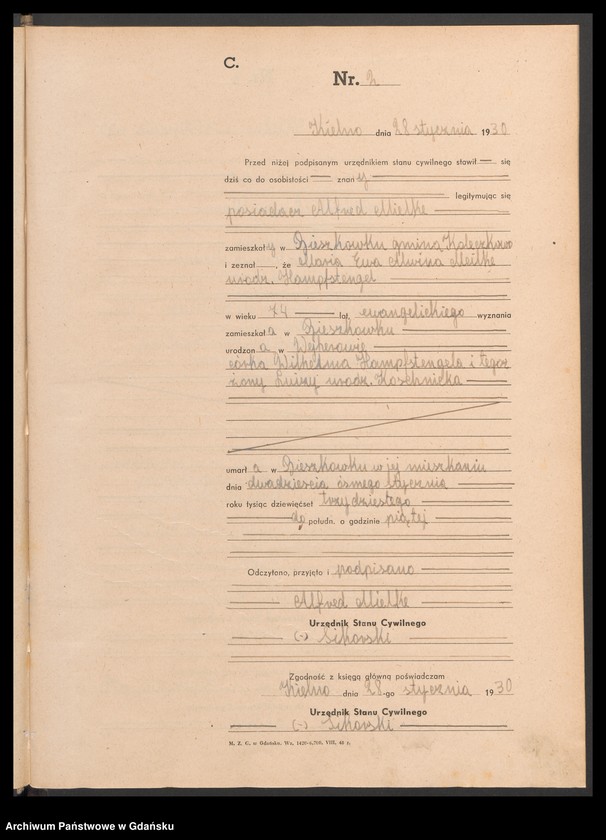 C.
Nr. 2
Kielno dnia 28 stycznia 1930
Przed niżej podpisanym urzędnikiem stanu cywilnego stawił się
dziś co do osobistości znany
legitymując się
posiadacz Alfred Mielke
zamieszkały w Bieszkowku gmina Koleczkowo
i zeznał, że Maria Ewa Alwina Mielke
urodz. Hampfstengel
w wieku 74 lat, ewangelickiego wyznania
zamieszkała w Bieszkowku
urodzona w Wejherowie
córka Wilhelma Hampfstengela i tegoż
żony Luizy urodz. Koschnicka
umarła w Bieszkowku w jej mieszkaniu
dnia dwadzieścia ósmego stycznia
roku tysiąc dziewięćset trzydziestego
do połudn. o godzinie piątej
Odczytano, przyjęto i podpisano
Alfred Mielke
Urzędnik Stanu Cywilnego
(-) Sikorski
Zgodność z księgą główną poświadczam
Kielno dnia 28-go stycznia 1930
Urzędnik Stanu Cywilnego
(-) Sikorski
M. Z. C. w Gdańsku. Wa. VIII. 46 r.
Archiwum Państwowe w Gdańsku